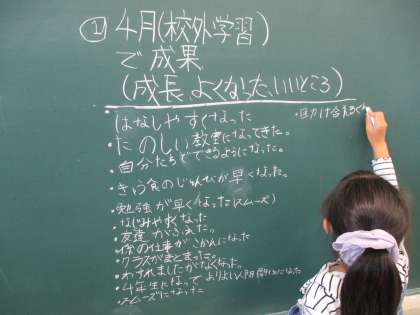 ① 4月(校外学習)
で成果
(成長、よくなった、いいところ)
・はなしやすくなった
・たのしい教室になってきた。
・自分たちでできるようになった。
・きゅう食のじゅんびが早くなった。
・勉強が早くなった(スムーズ)
・なじみやすくなった
・友達がふえた。
・係の仕事がさかんになった
・クラスがまとまった。
・わすれましたがなくなった。
・4年生になってよりよい人間関になった
・スムーズになった
・助け合える